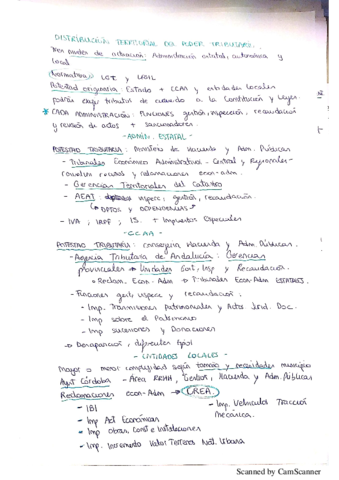 DISTRIBUCIÓN TERRITORIAL DEL PODER TRIBUTARIO.
Tres niveles de actuación: Administración estatal, autonómica y
local.
Normativa: LGT y LGIL
Potestad originaria: Estado + CCAA y entidades locales
podrán exigir tributos de acuerdo a la Constitución y leyes.
* CADA ADMINISTRACIÓN: FUNCIONES gestión, inspección, recaudación
y revisión de actos + sancionadores.
- ADMÓN. ESTATAL -
POTESTAD TRIBUTARIA: Ministerio de Hacienda y Adm. Públicas
- Tribunales Económico Administrativos - Central y Regionales -
resuelven recursos y reclamaciones econ-adm.
- Gerencias Territoriales del Catastro
- AEAT: inspecc, gestión, recaudación.
DPTOS y DEPENDENCIAS
- IVA, IRPF, IS. + Impuestos Especiales
- CCAA -
POTESTAD TRIBUTARIA: consejería Hacienda y Adm. Públicas.
- Agencia Tributaria de Andalucía: Gerencias
provinciales → Unidades Gest, Insp y Recaudación.
Reclam. Econ-Adm → Tribunales Econ-Adm ESTATALES.
- Funciones gest, inspecc y recaudación:
- Imp. Transmisiones Patrimoniales y Actos Jurid. Doc.
- Imp sobre el Patrimonio
- Imp sucesiones y Donaciones
→ Desaparición, diferentes tipos!
- ENTIDADES LOCALES -
Mayor o menor complejidad según tamaño y necesidades municipio
Ayt Córdoba - Área RRHH, Gestión, Hacienda y Adm. Públicas
Reclamaciones econ-Adm → CREA
- IBI
- Imp. Vehículos Tracción
Mecánica.
- Imp Act Económicas
- Imp Obras, Const e Instalaciones
- Imp. Incremento Valor Terrenos Nat. Urbana
Scanned by CamScanner